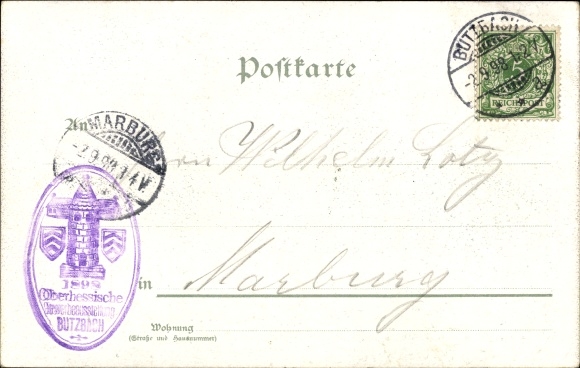 Postkarte
BUTZBACH
2.9.99
REICHSPOST
MARBURG
2.9.99
An Herrn Wilhelm Lotz
in Marburg
1899
Oberhessische
Gewerbeausstellung
BUTZBACH
Wohnung
(Straße und Hausnummer)